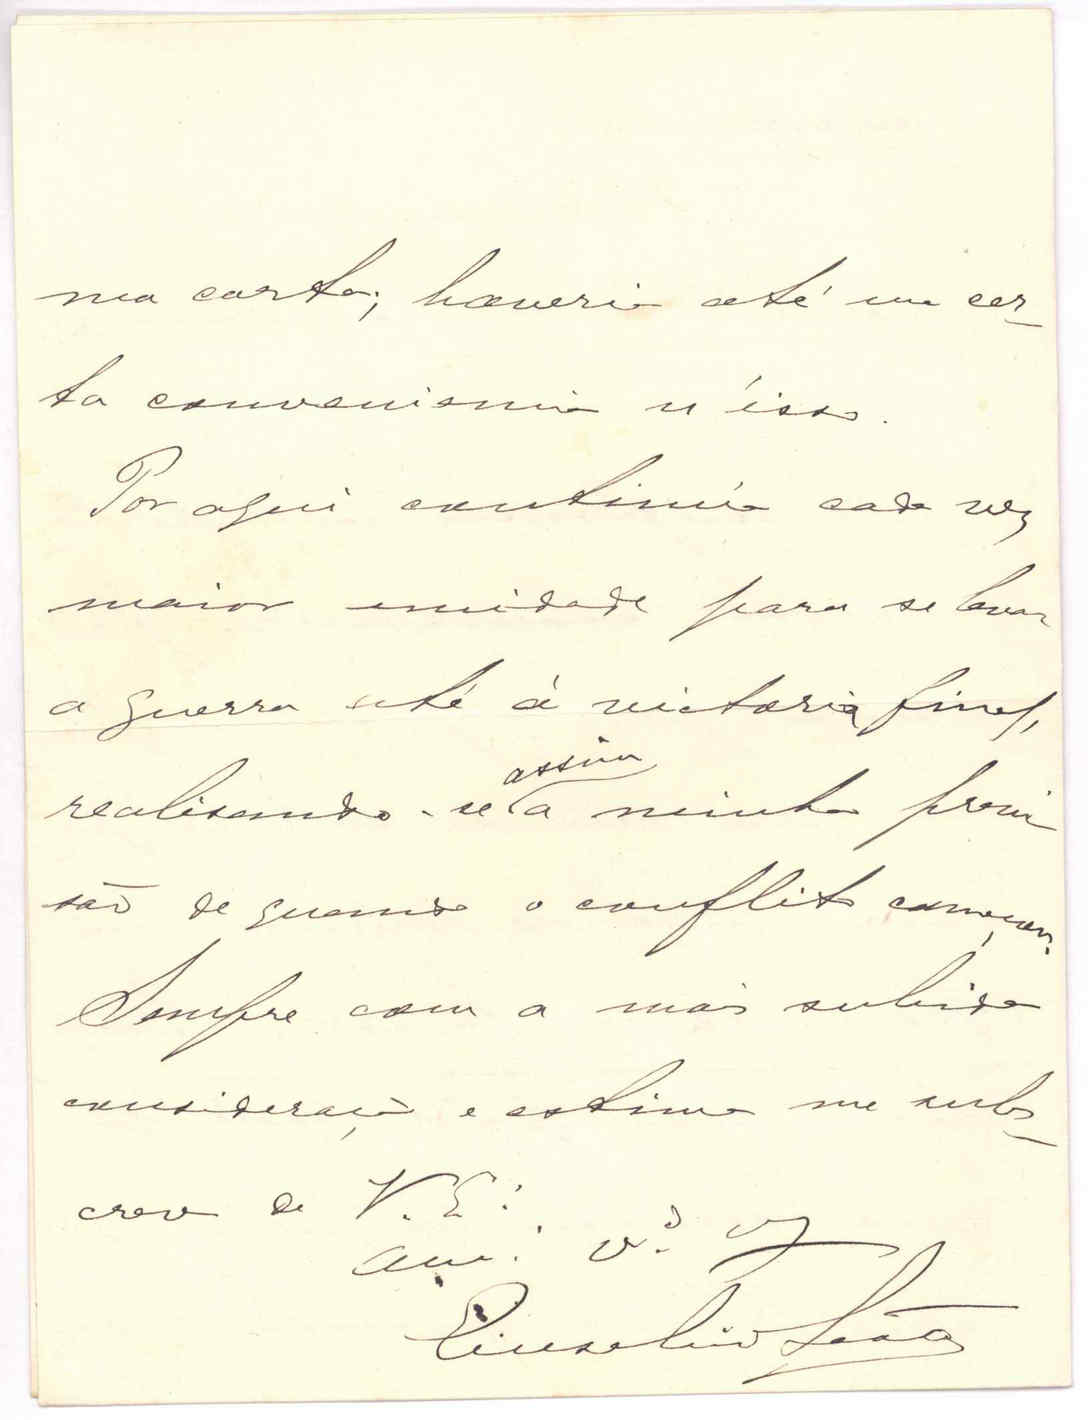 ma carta; haveria até uma cer-
ta conveniencia n'isso.
Por aqui continúa cada vez
maior unidade para se levar
a guerra até á victoria final,
realisando-se assim a minha previ
são de quando o conflito começou.
Sempre com a mais subida
consideração e estima me subs-
crevo de V. E.
am.
Euzebio Leão